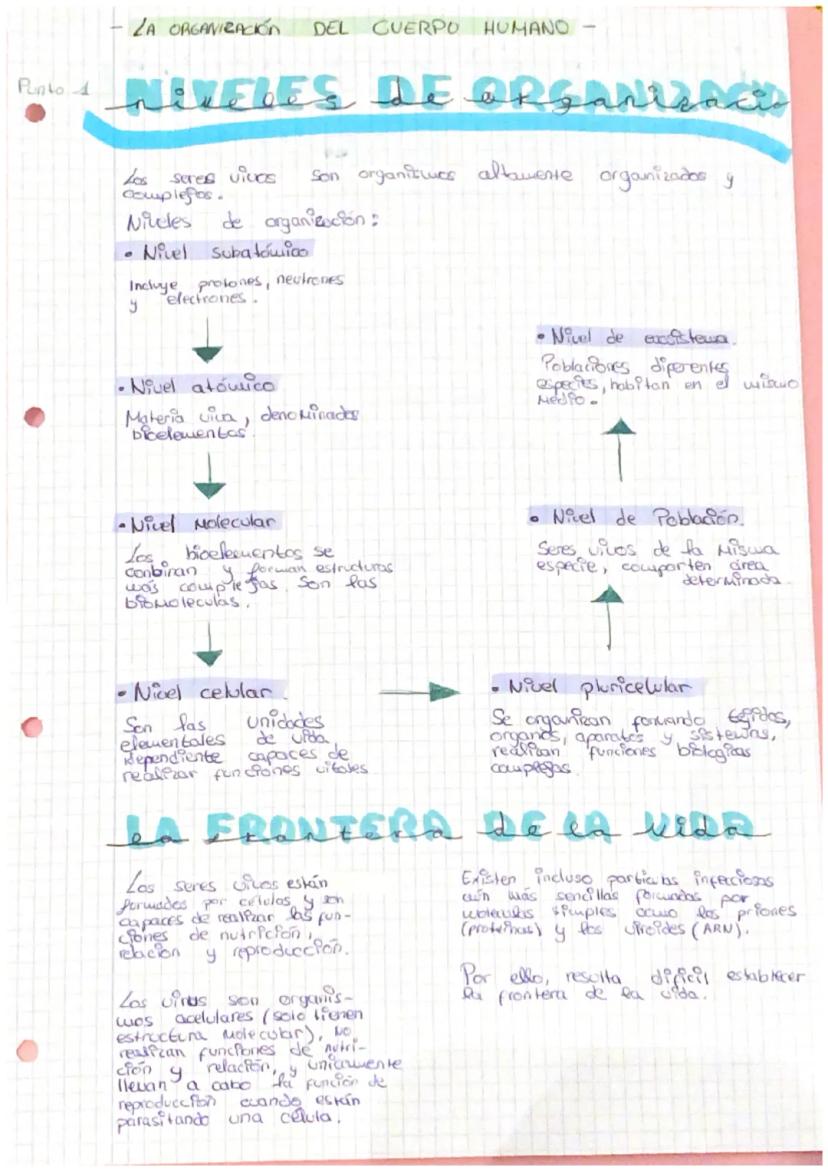 - LA ORGANIZACIÓN DEL CUERPO HUMANO -
Punto 1
NIVELES DE ORGANIZACIÓ
niveles de organizació
Los seres vivos son organismos altamente organizados y
complejos.
Niveles de organización:
• Nivel subatómico
Incluye protones, neutrones
y electrones.
• Nivel atómico
Materia viva, denominados
bioelementos.
• Nivel Molecular
Los bioelementos se
conbinan y forman estructuras
más complejas. Son las
biomoleculas.
• Nivel celular.
Son las unidades
elementales de vida
idependiente capaces de
realizar funciones vitales
• Nivel pluricelular
Se organizan formando tejidos,
organos, aparatos y sistemas,
realizan funciones biologicas
complejas.
• Nivel de Población.
Seres vivos de la misma
especie, comparten área
determinada.
• Nivel de ecosistema.
Poblaciones diferentes
especies, habitan en el mismo
medio.
LA FRONTERA DE LA VIDA
la frontera de la vida
Los seres vivos están
formados por células y son
capaces de realizar las fun-
ciones de nutrición,
relación y reproducción.
Los virus son organis-
mos acelulares (solo tienen
estructura molecular), no
realizan funciones de nutri-
ción y relación, y unicamente
llevan a cabo la función de
reproducción cuando están
parasitando una célula.
Existen incluso particulas infecciosas
aún más sencillas formadas por
moleculas simples como los priones
(proteinas) y los viroides (ARN).
Por ello, resulta dificil establecer
la frontera de la vida.